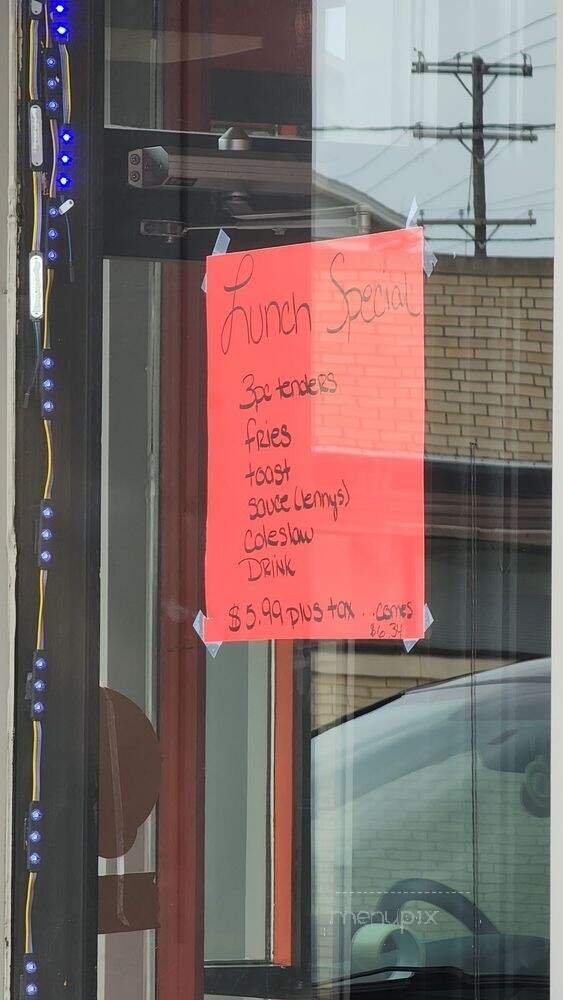 Lunch Special
3pc tenders
fries
toast
sauce (Lennys)
Coleslaw
DRINK
$5.99 plus tax .. comes
$6.34
menupix